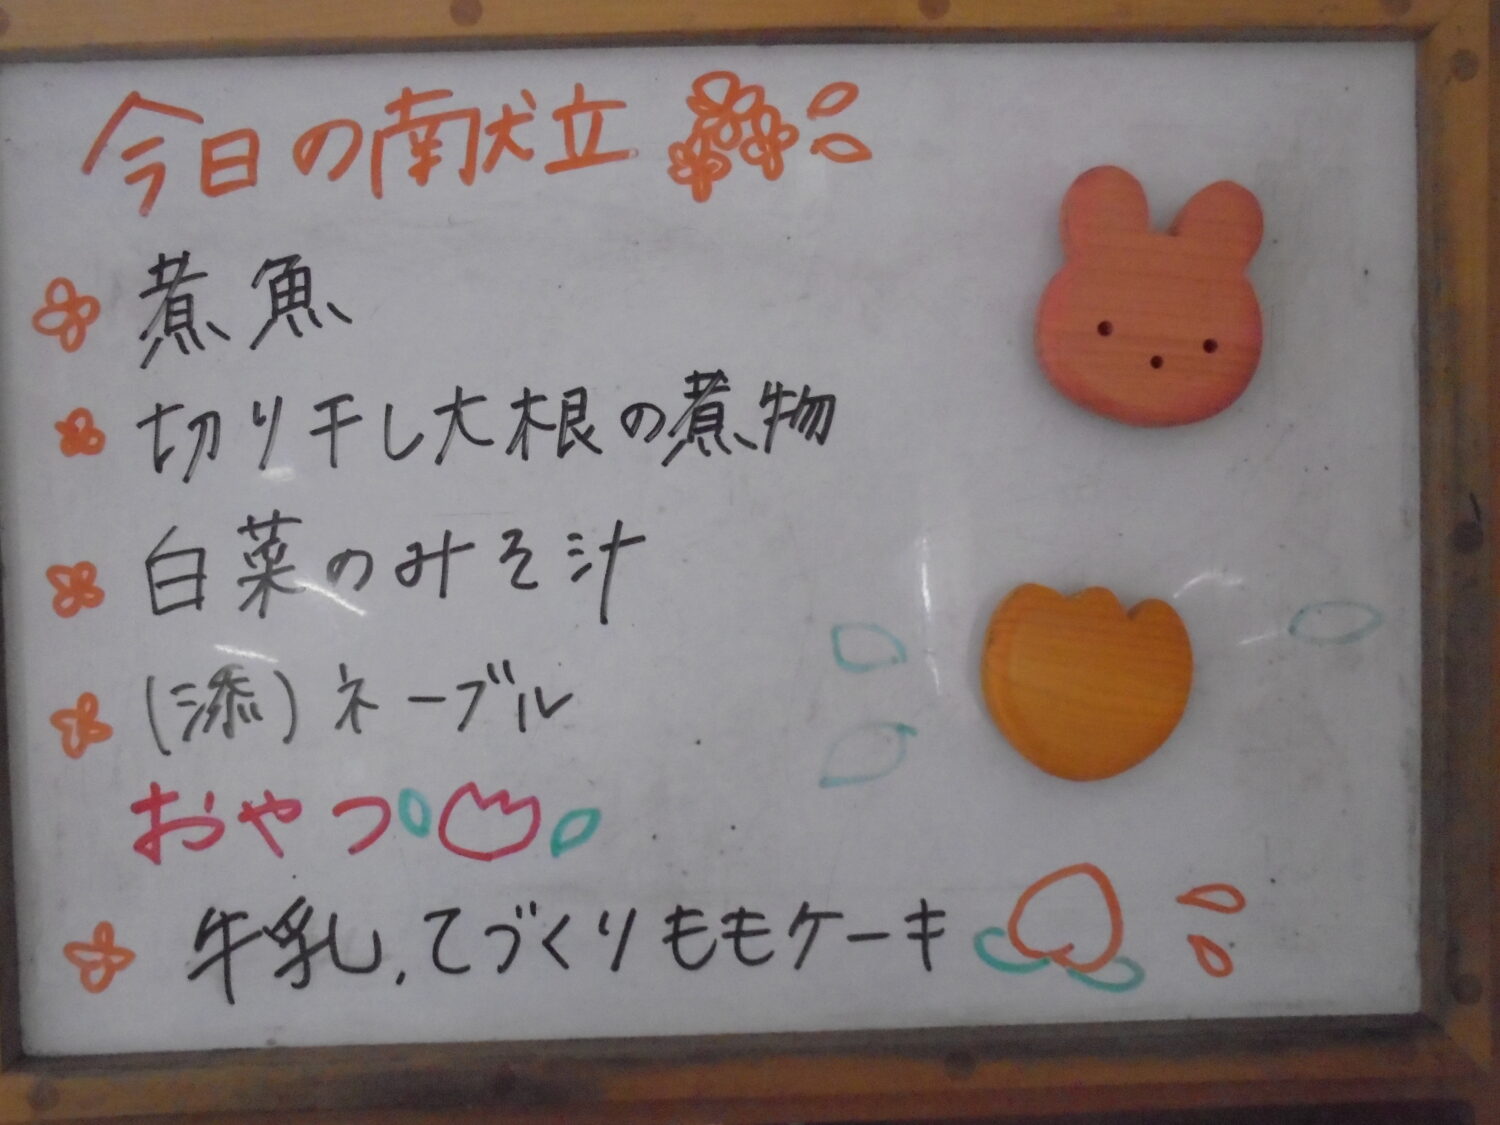 今日の献立
煮魚
切り干し大根の煮物
白菜のみそ汁
(添)ネーブル
おやつ
牛乳、てづくりももケーキ